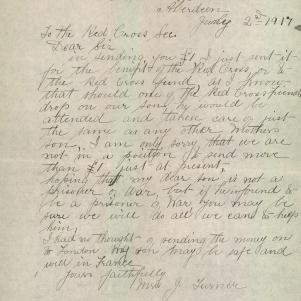 Aberdeen
July 2nd 1917
To the Red Cross Sec.
Dear Sir
in sending you £1 I just sent it
for the benefit of the Red Cross for
the Red Cross fund as I know
that should one of the Red Cross friends
drop on our son, he would be
attended and taken care of just
the same as any other Mothers
son, I am only sorry that we are
not in a position to send more
than £1 just at present
hoping that my dear son is not a
prisoner of War, but if he is found to
be a prisoner of War you may be
sure we will do all we can to help
him
I had no thought of sending the money on
to London. My son may be safe and
well in France
Yours faithfully
Mrs J. Turner